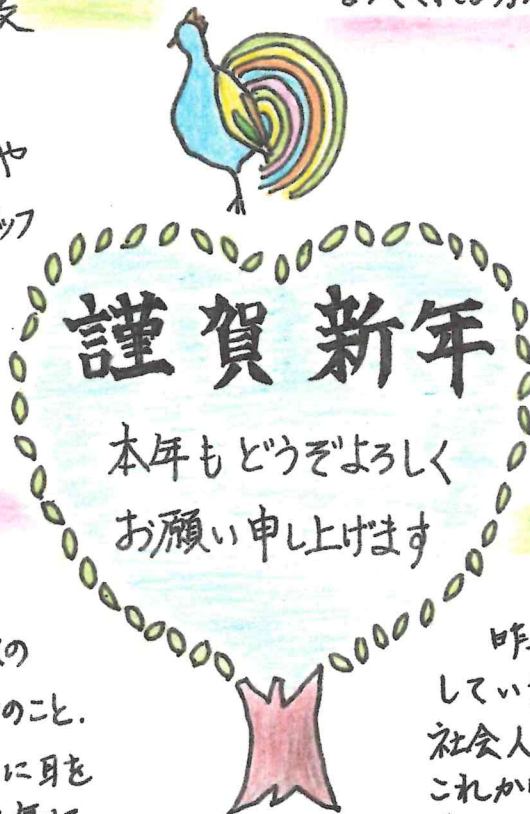 や
謹賀新年
本年もどうぞよろしく
お願い申し上げます
の
のこと.
に耳を
して
社会人
これか